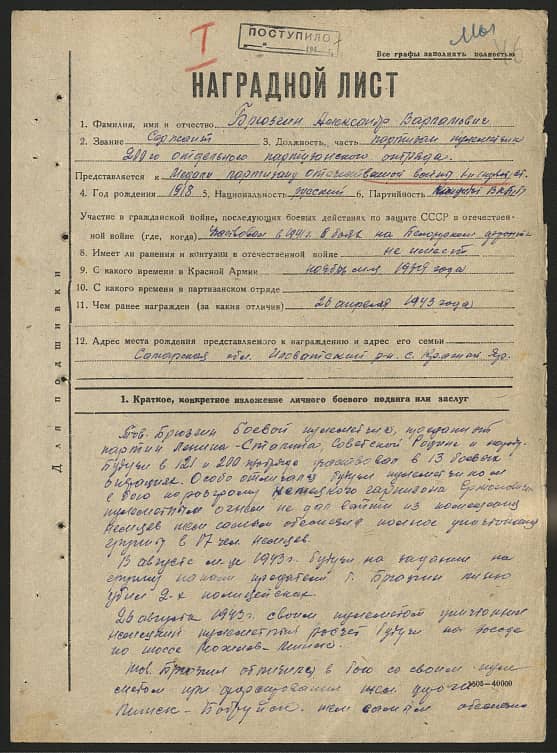 I
ПОСТУПИЛО
Все графы заполнять полностью
НАГРАДНОЙ ЛИСТ
1. Фамилия, имя и отчество Брюзгин Александр Варламович
2. Звание Сержант 3. Должность, часть партизан пулеметчик
200го отдельного партизанского отряда.
Представляется к Медали партизану отечественной войны
4. Год рождения 1918 5. Национальность русский 6. Партийность ВКП(б)
Участие в гражданской войне, последующих боевых действиях по защите СССР в отечествен-
ной войне (где, когда) Участвовал в 1941 г. в боях на Белорусском
8. Имеет ли ранения и контузии в отечественной войне не имеет
9. С какого времени в Красной Армии ноябрь м-ца 1939 года
10. С какого времени в партизанском отряде
11. Чем ранее награжден (за какие отличия) 26 апреля 1943 года
12. Адрес места рождения представляемого к награждению и адрес его семьи
Самарская обл. р-н с. Красный Яр.
Для подшивки
1. Краткое, конкретное изложение личного боевого подвига или заслуг
Тов. Брюзгин боевой пулеметчик, преданный
партии Ленина-Сталина, Советской Родине и народу.
Будучи в 121 и 200 отряде участвовал в 13 боевых
операциях. Особо отличался будучи пулеметчиком
в бою по разгрому немецкого гарнизона
пулеметным огнем не дал выйти из помещения
немцев чем самым обеспечил полное уничтожение
группу в 17 чел. немцев.
В августе м-це 1943 г. будучи на задании на
группу напали предатели т. Брюзгин лично
убил 2-х полицейских.
26 августа 1943 г. своим пулеметом уничтожил
немецкий пулеметный расчет будучи на засаде
по шоссе Могилев-Минск.
Тов. Брюзгин отличился в бою со своим пуле
метом при форсировании жел. дороги
Минск-Бобруйск. чем самым обеспечил
1608—40000